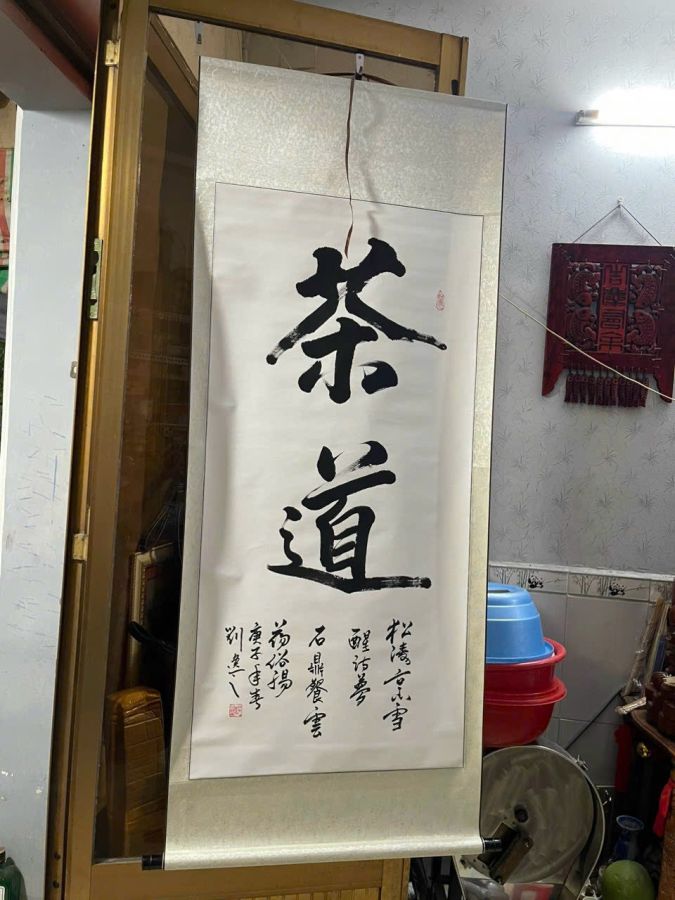 茶道
松濤烹雪
醒詩夢
石鼎餐雲
蕩俗腸
庚子年春
劉